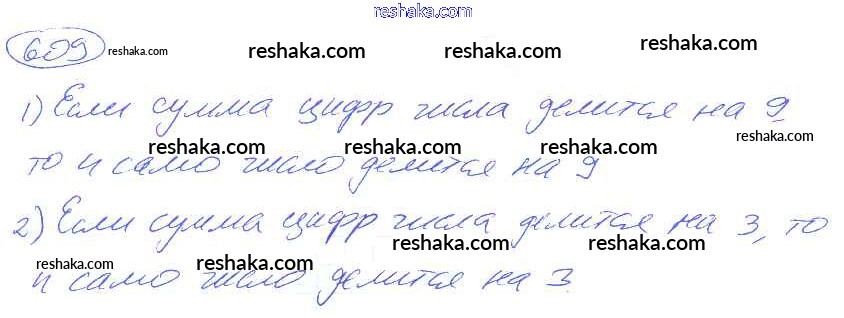 reshaka.com
609 reshaka.com reshaka.com reshaka.com reshaka.com
1) Если сумма цифр числа делится на 9
reshaka.com
reshaka.com reshaka.com reshaka.com
то и само число делится на 9
2) Если сумма цифр числа делится на 3, то
reshaka.com reshaka.com reshaka.com reshaka.com
и само число делится на 3